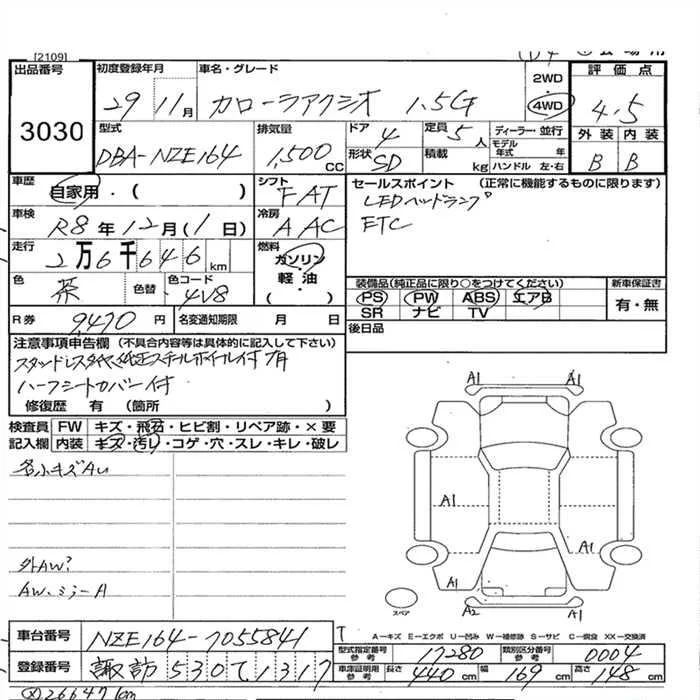 [2109]
出品番号
3030
初度登録年月
29 11月
車名・グレード
カローラアクシオ 1.5G
2WD
4WD
評価点
4.5
外装 内装
B B
型式
DBA-NZE164
排気量
1,500 CC
ドア
4
定員
5人
形状
SD
積載
kg
ディーラー・並行
モデル年式 年
ハンドル 左・右
車歴
自家用・( )
シフト
FAT
セールスポイント (正常に機能するものに限ります)
LEDヘッドランプ
ETC
車検
R8年12月(1日)
冷房
AAC
走行
2万6千646km
燃料
ガソリン
軽油
( ・ )
色
茶
色替
色コード
4V8
装備品(純正品に限り○をつけてください)
PS PW ABS エアB
SR ナビ TV
新車保証書
有・無
R券
9,470円
名変通知期限 月 日
後日品
注意事項申告欄 (不具合内容等は具体的に記入して下さい)
ハーフシートカバー付
修復歴 有 (箇所 )
検査員記入欄
FW キズ・飛石・ヒビ割・リペア跡・×要
内装 キズ・汚レ・コゲ・穴・スレ・キレ・破レ
各小キズAU
外AW?
AW、ミラーA
A1 A1
A1
A1
A1
A1
A1
A2 A1
スペア
A―キズ E―エクボ U―凹み W―補修跡 S―サビ C―腐食 XX―交換済
車台番号
NZE164-7055841
登録番号
諏訪 530 て 1317
型式指定番号 参考
17280
類別区分番号 参考
0004
車庫証明用 参考
長さ 440cm 幅 169cm 高さ 148cm
26647km